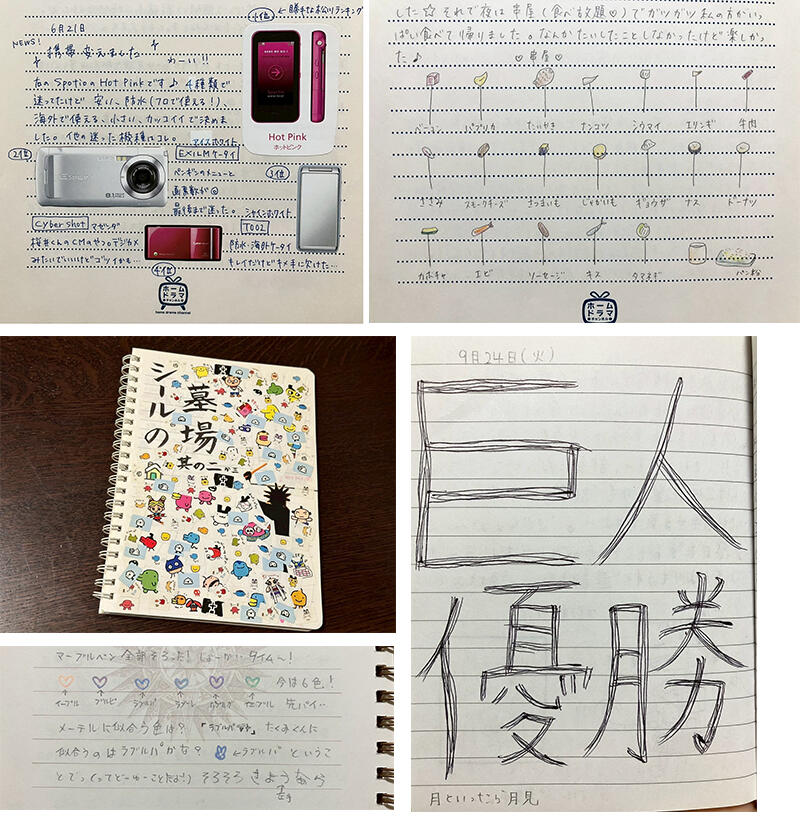 1位
←勝手な松リランキング
6月21日
NEWS!
携帯変えました
わーい!!
右のSpotioのHot Pinkです♪4種類で
迷ってたけど 安い、防水(フロで使える!)、
海外で使える、小さい、カッコイイで決めま
した。他の迷った機種はコレ。
Hot Pink
ホットピンク
2位
アイスホワイト
EXILIMケータイ
ペンギンのメニューと
画素数が◎
最後まで迷った。
3位
シャインホワイト
T002
防水・海外ケータイ
キレイだけどキメ手に欠けた…
Cyber shot マゼンダ
桜井くんのCMのやつ。デジカメ
みたいでいいけどゴツイかも…
4位
ホーム
ドラマ
チャンネル
home drama channel
した☆それで夜は串屋(食べ放題♡)でガツガツ私の方がいっ
ぱい食べて帰りました。なんかたいしたことしなかったけど楽しかっ
た♪
♡串屋♡
ベーコン パプリカ たいやき ナンコツ シウマイ エリンギ 牛肉
ささみ スモークチーズ さつまいも じゃがいも ギョウザ ナス ドーナツ
カボチャ エビ ソーセージ キス タマネギ パン粉
ホーム
ドラマ
チャンネル
シールの
墓場
其の二
マーブルペン全部そろった!
タイムへ!
今は6色!
先パイ…
メーテルに似合う色は?
たくみくんに
似合うのはラブルパかな?
←ラブルパ というこ
とでっ(ってどーゆーことだよ!) そろそろ さようなら
9月24日(火)
巨人
優勝
月といったら月見